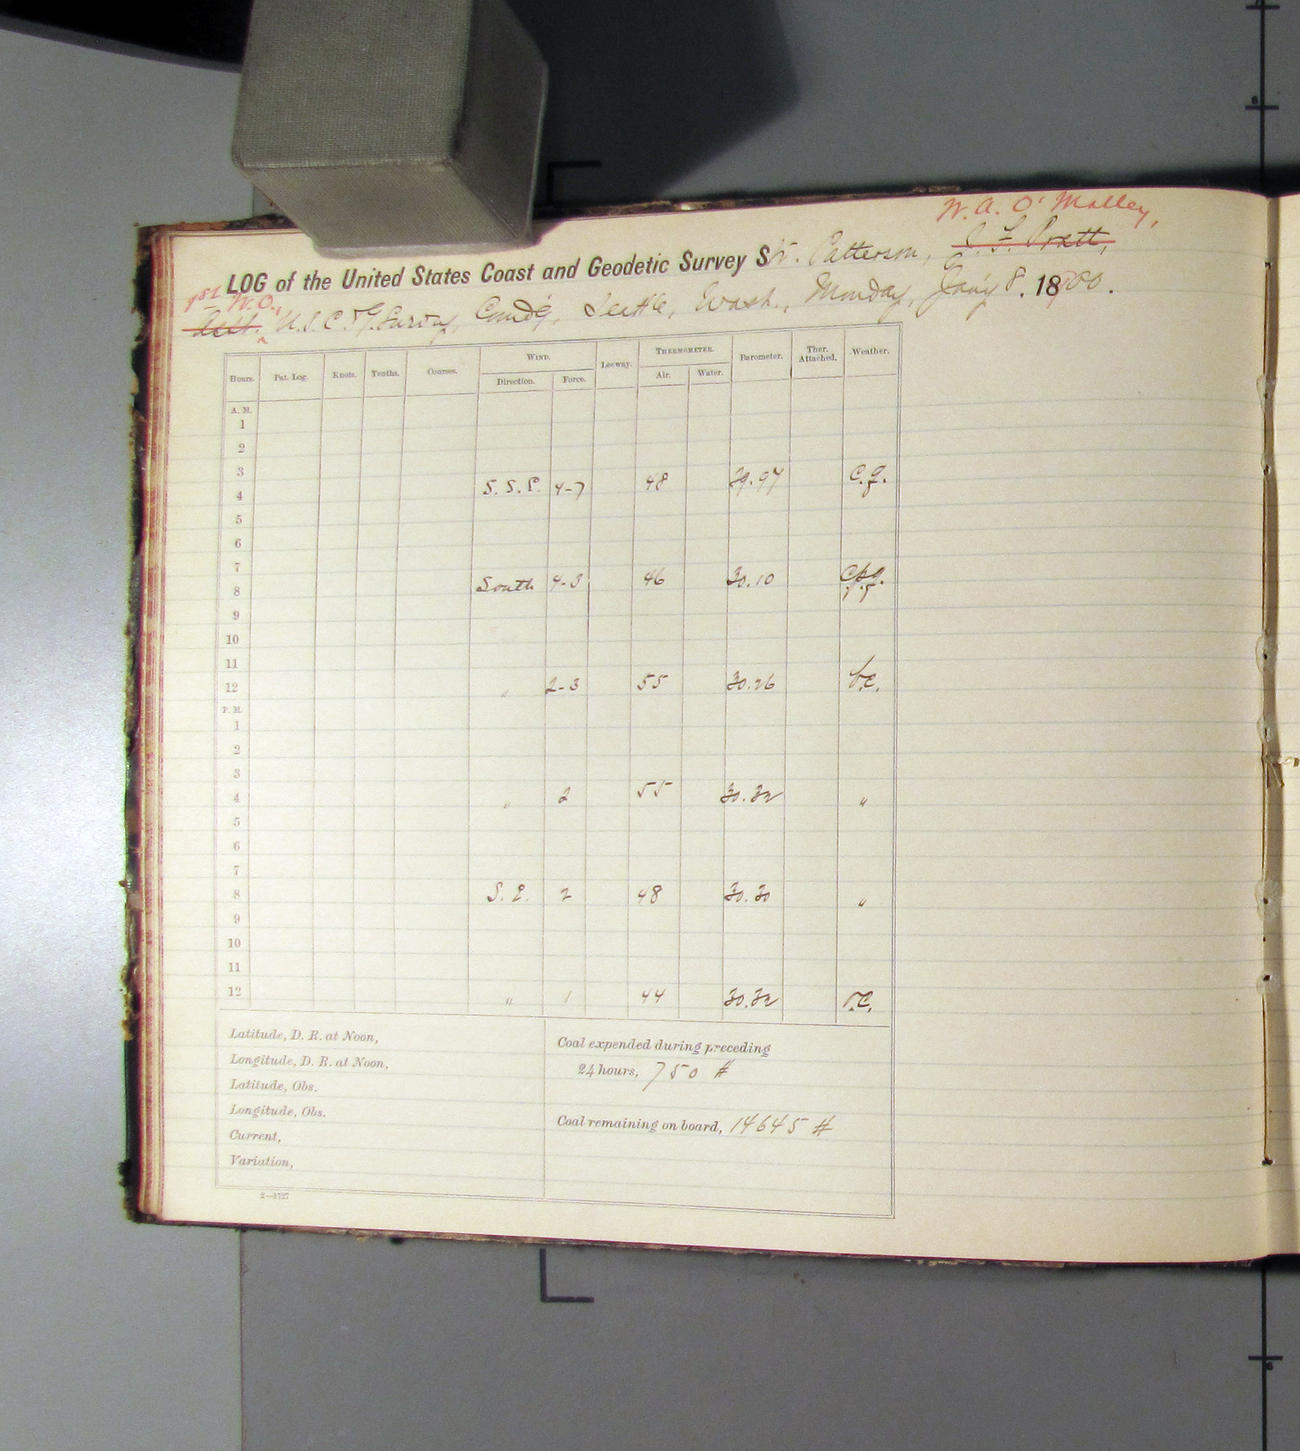 W. A. O'Malley,
LOG of the United States Coast and Geodetic Survey Str. Patterson, J. F. Pratt,
1st W.O.,
Asst. U.S.C. & G. Survey, Comd'g, Seattle, Wash., Monday, Jan'y 8. 1900.
Hours. Pat. Log. Knots. Tenths. Courses. WIND. Direction. Force. Leeway. THERMOMETER. Air. Water. Barometer. Ther. Attached. Weather.
A. M.
1
2
3
4 S. S. E. 4-7 48 29.97 c.q.
5
6
7
8 South 4-3 46 30.10 c.p.q.
9
10
11
12 " 2-3 55 30.26 b.c.
P. M.
1
2
3
4 " 2 55 30.32 "
5
6
7
8 S. E. 2 48 30.30 "
9
10
11
12 " 1 44 30.32 b.c.
Latitude, D. R. at Noon,
Longitude, D. R. at Noon,
Latitude, Obs.
Longitude, Obs.
Current,
Variation,
Coal expended during preceding
24 hours, 750 #
Coal remaining on board, 14645 #
2—1727